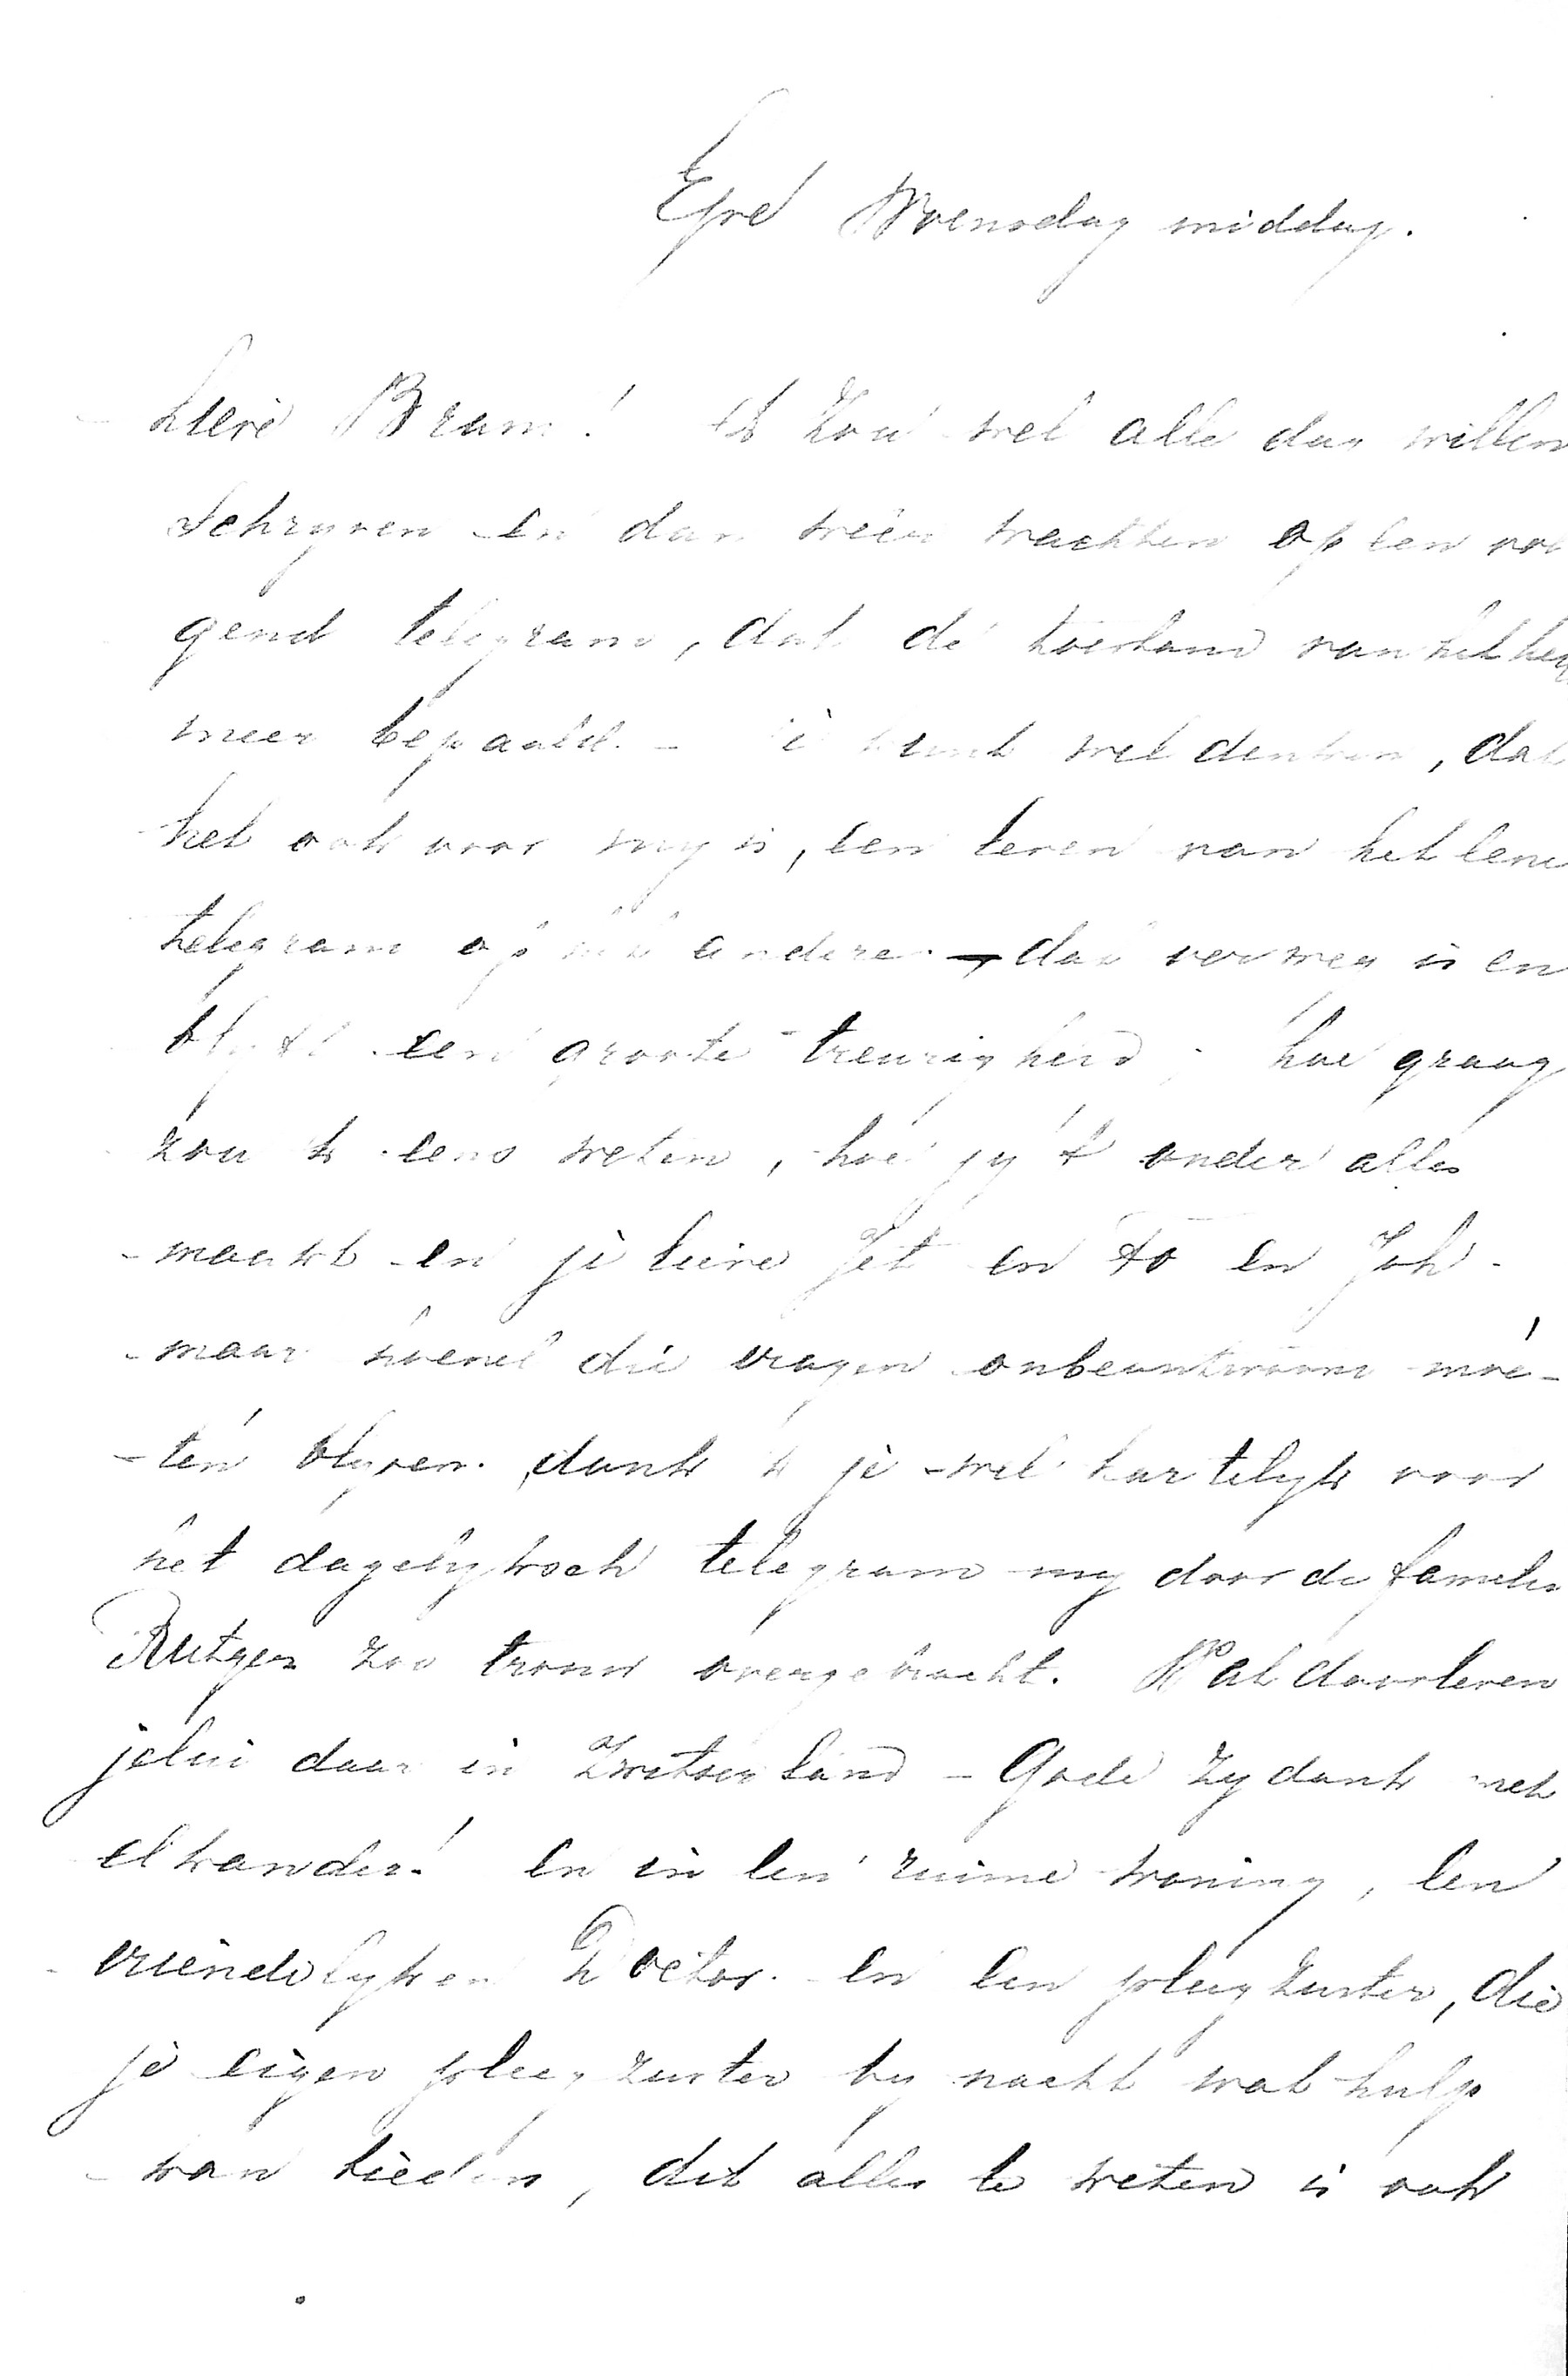 Egrd Woensdag middag.
Lieve Bram! Ik zou wel alle dag willen
schryven en dan weer wachten op een vol
gend telegram, dat de toestand van het
meer bepaald. - Je kunt wel denken, dat
het ook voor my is, een leven van het eene
telegram op het andere - dat ver weg is en
blyft een groote treurigheid; hoe graag
zou ik eens weten, hoe jy 't onder alles
maakt en je lieve Jet en To en Joh -
maar hoewel die vragen onbeantwoord moe-
ten blyven, dank ik je wel hartelyk voor
het dagelyksch telegram my door de familie
Rutgers zoo trouw overgebracht. Wat doorleven
jelui daar in Zwitserland - Gode zy dank met
elkander! en in een ruime woning, een
vriendelyken Doctor en een pleegzuster, die
je eigen pleegzuster by nacht wat hulp
kan bieden, dit alles te weten is ook